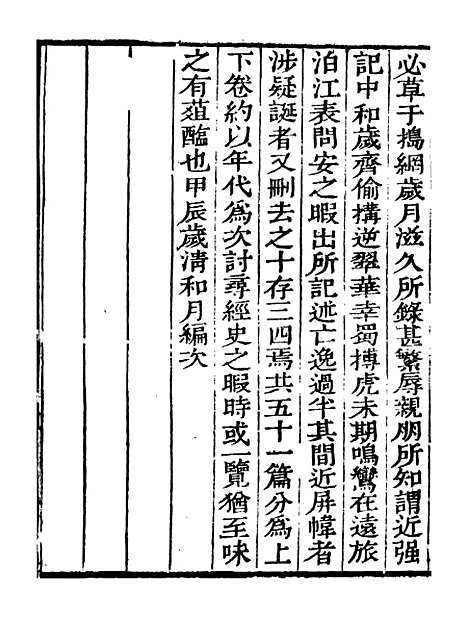 必草于擣網歲月滋久所錄甚繁辱親朋所知謂近强
記中和歲齊偷搆逆翠華幸蜀搏虎未期鳴鸞在遠旅
泊江表問安之暇出所記述亡逸過半其間近屏幃者
涉疑誕者又刪去之十存三四焉共五十一篇分爲上
下卷約以年代爲次討尋經史之暇時或一覽猶至味
之有葅醢也甲辰歲淸和月編次